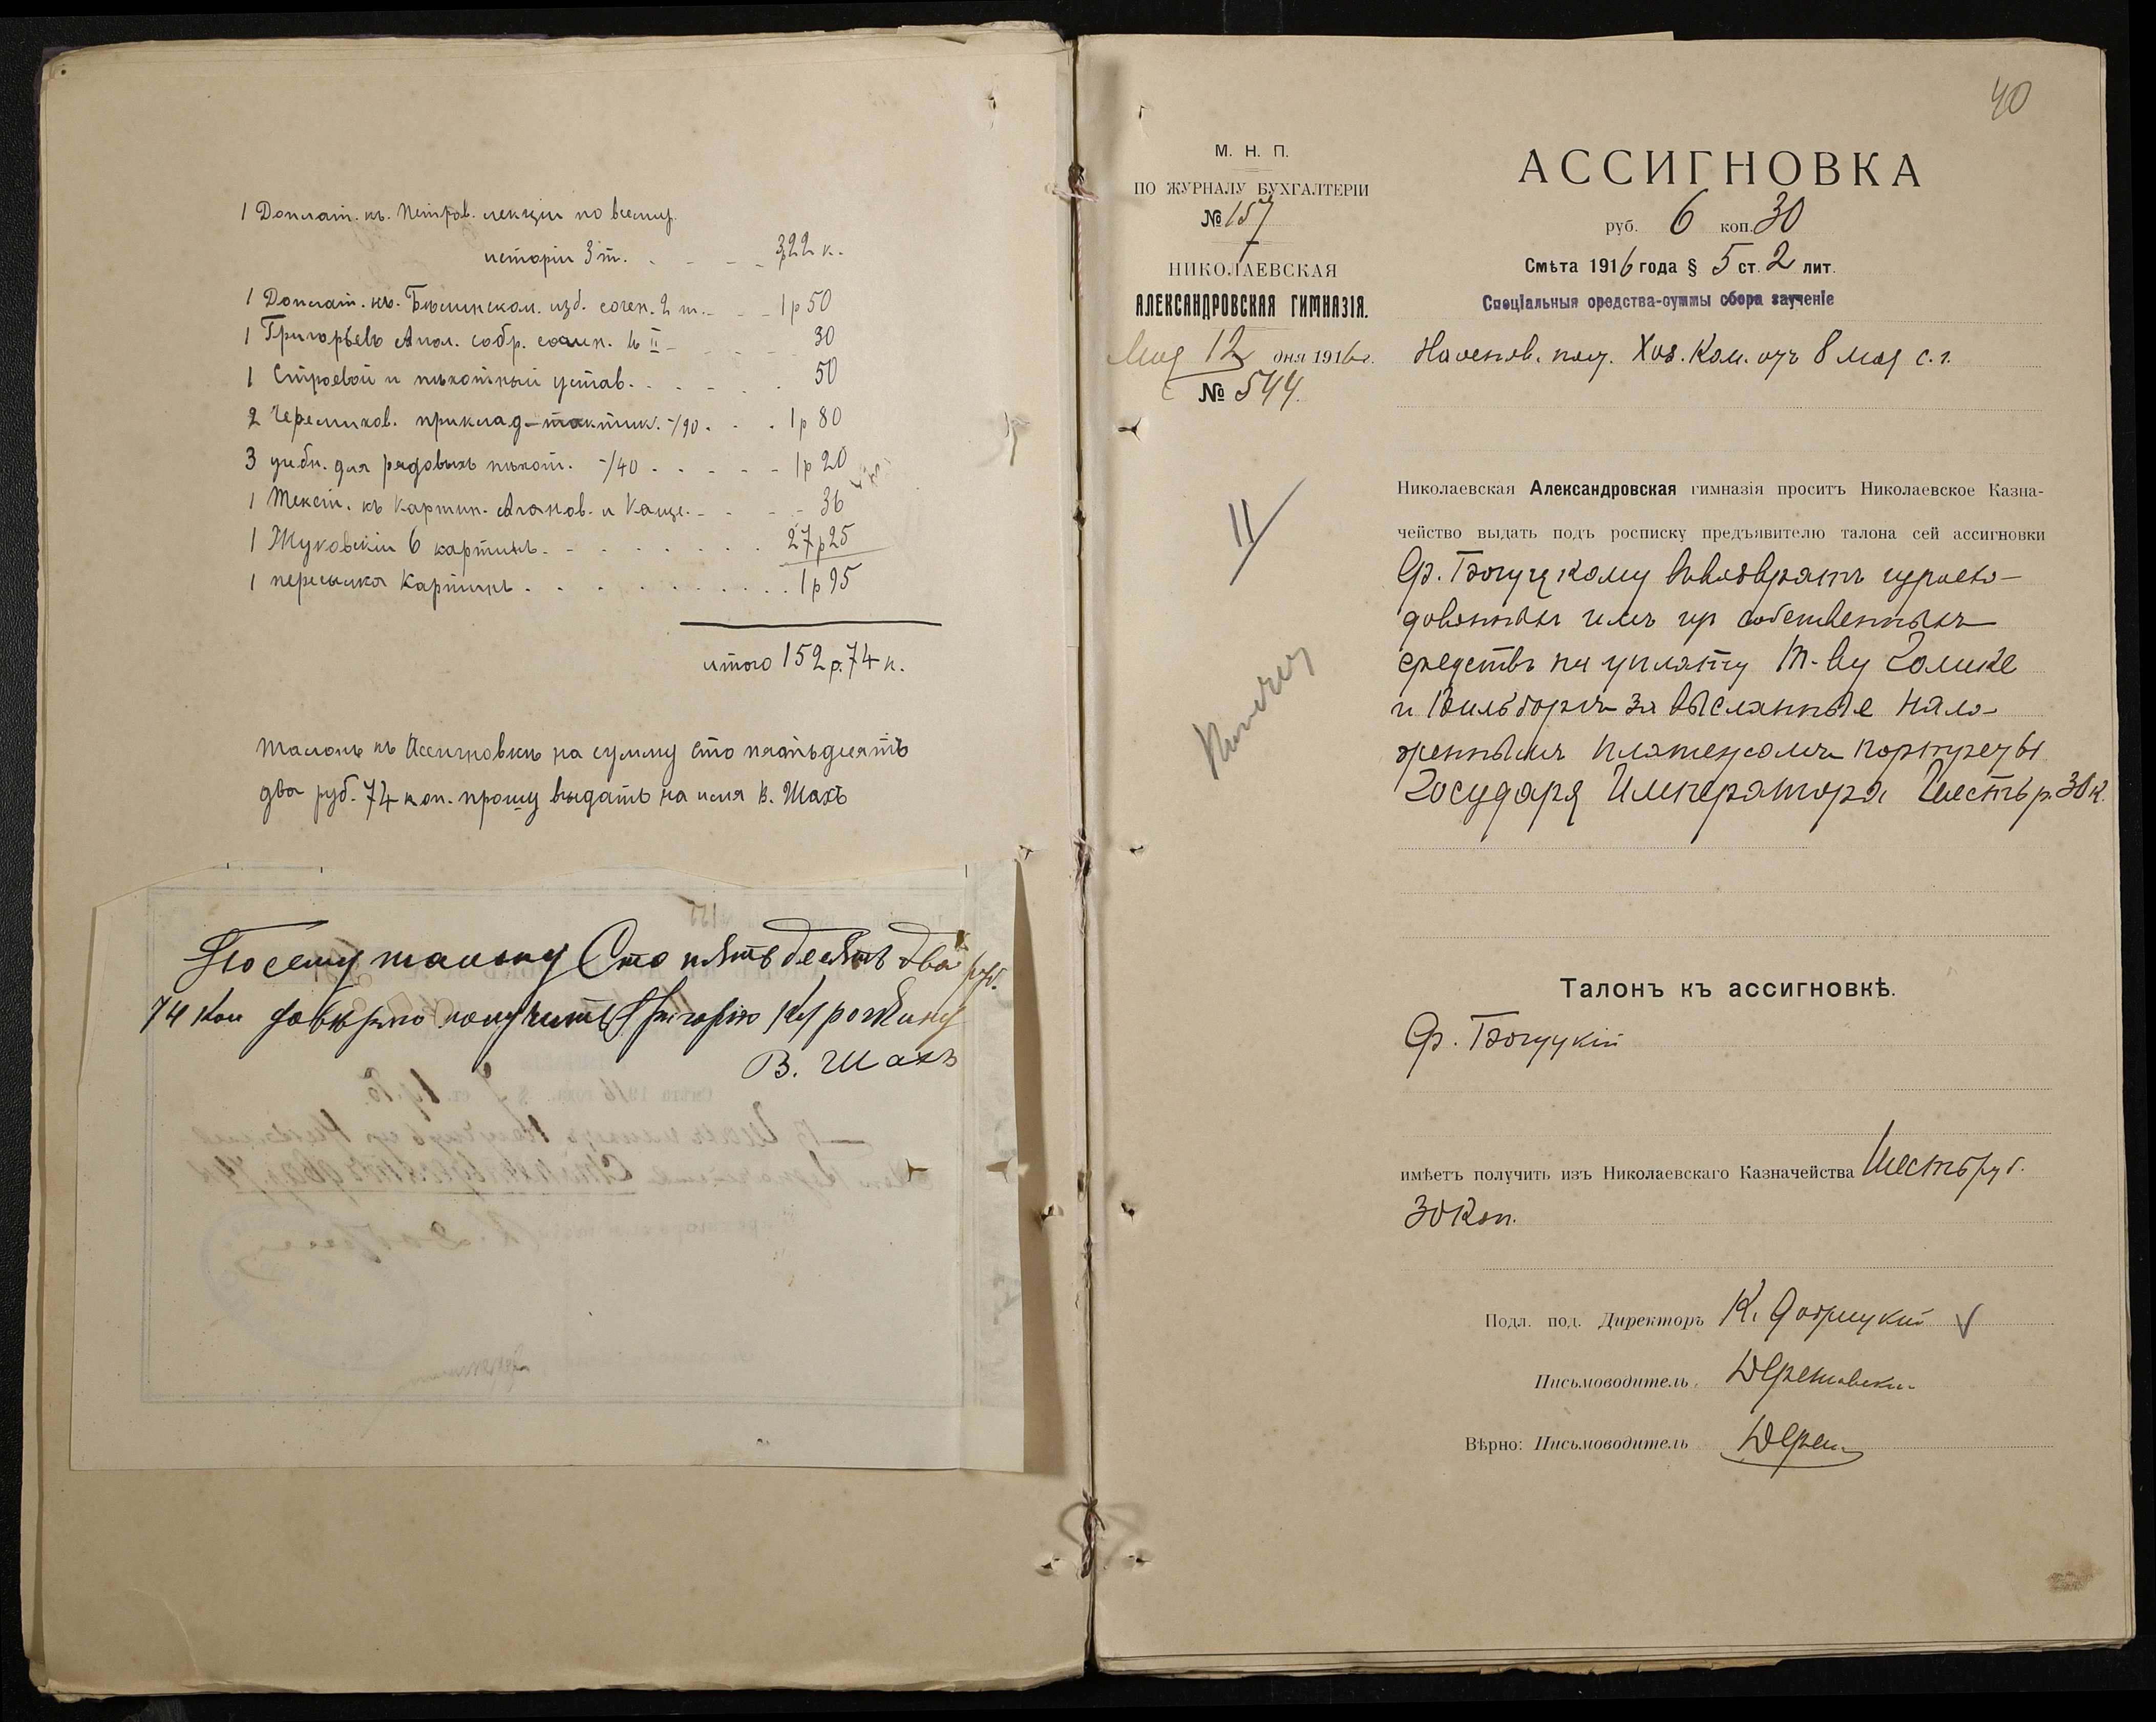 1 Доплат. къ. Петров. лекціи по всемир.
исторіи 3 т. . - - - 322 к.
1 Доплат. къ. Бѣлинском. изд. сочен. 2 т. - - - 1 р 50
1 Григорьевъ Апол. собр. сочин. II - - - - 30
1 Строевой и пѣхотный уставъ. . . . . 50
2 Черемисов. приклад-тактик. -/90 . . . 1 р 80
3 учебн. для рядовыхъ пѣхот. -/40 . . . . . 1 р 20
1 Текст. къ картин. - - - - 36
1 Жуковскій 6 картинъ. - . . . . . . 27 р 25
1 пересылка картинъ . . . . . . . . . . 1 р 95
итого 152 р. 74 к.
талонъ къ Ассигновкѣ на сумму сто пятьдесятъ
два руб. 74 коп. прошу выдать на имя В. Шахъ
По сему талону Сто пятьдесятъ два руб.
74 коп довѣряю получить Григорію
В. Шахъ
40
М. Н. П.
ПО ЖУРНАЛУ БУХГАЛТЕРІИ
№ 157
НИКОЛАЕВСКАЯ
АЛЕКСАНДРОВСКАЯ ГИМНАЗІЯ.
Мая 12 дня 1916 г.
№ 544.
II
АССИГНОВКА
руб. 6 коп. 30
Смѣта 1916 года § 5 ст. 2 лит.
Спеціальныя средства-суммы сбора за ученіе
На основ. пост. Хоз. Ком. отъ 8 мая с. г.
Николаевская Александровская гимназія проситъ Николаевское Казна-
чейство выдать подъ росписку предъявителю талона сей ассигновки
Ф. Богуцкому въ возвратъ израсхо-
дованныхъ имъ изъ собственныхъ
средствъ на уплату Т-ву Голике
и Вильборгъ за высланные нало-
женнымъ платежомъ портреты
Государя Императора Шесть р. 30 к.
Талонъ къ ассигновкѣ.
Ф. Богуцкій
имѣетъ получить изъ Николаевскаго Казначейства Шесть руб.
30 коп.
Подл. под. Директоръ К.
Письмоводитель
Вѣрно: Письмоводитель